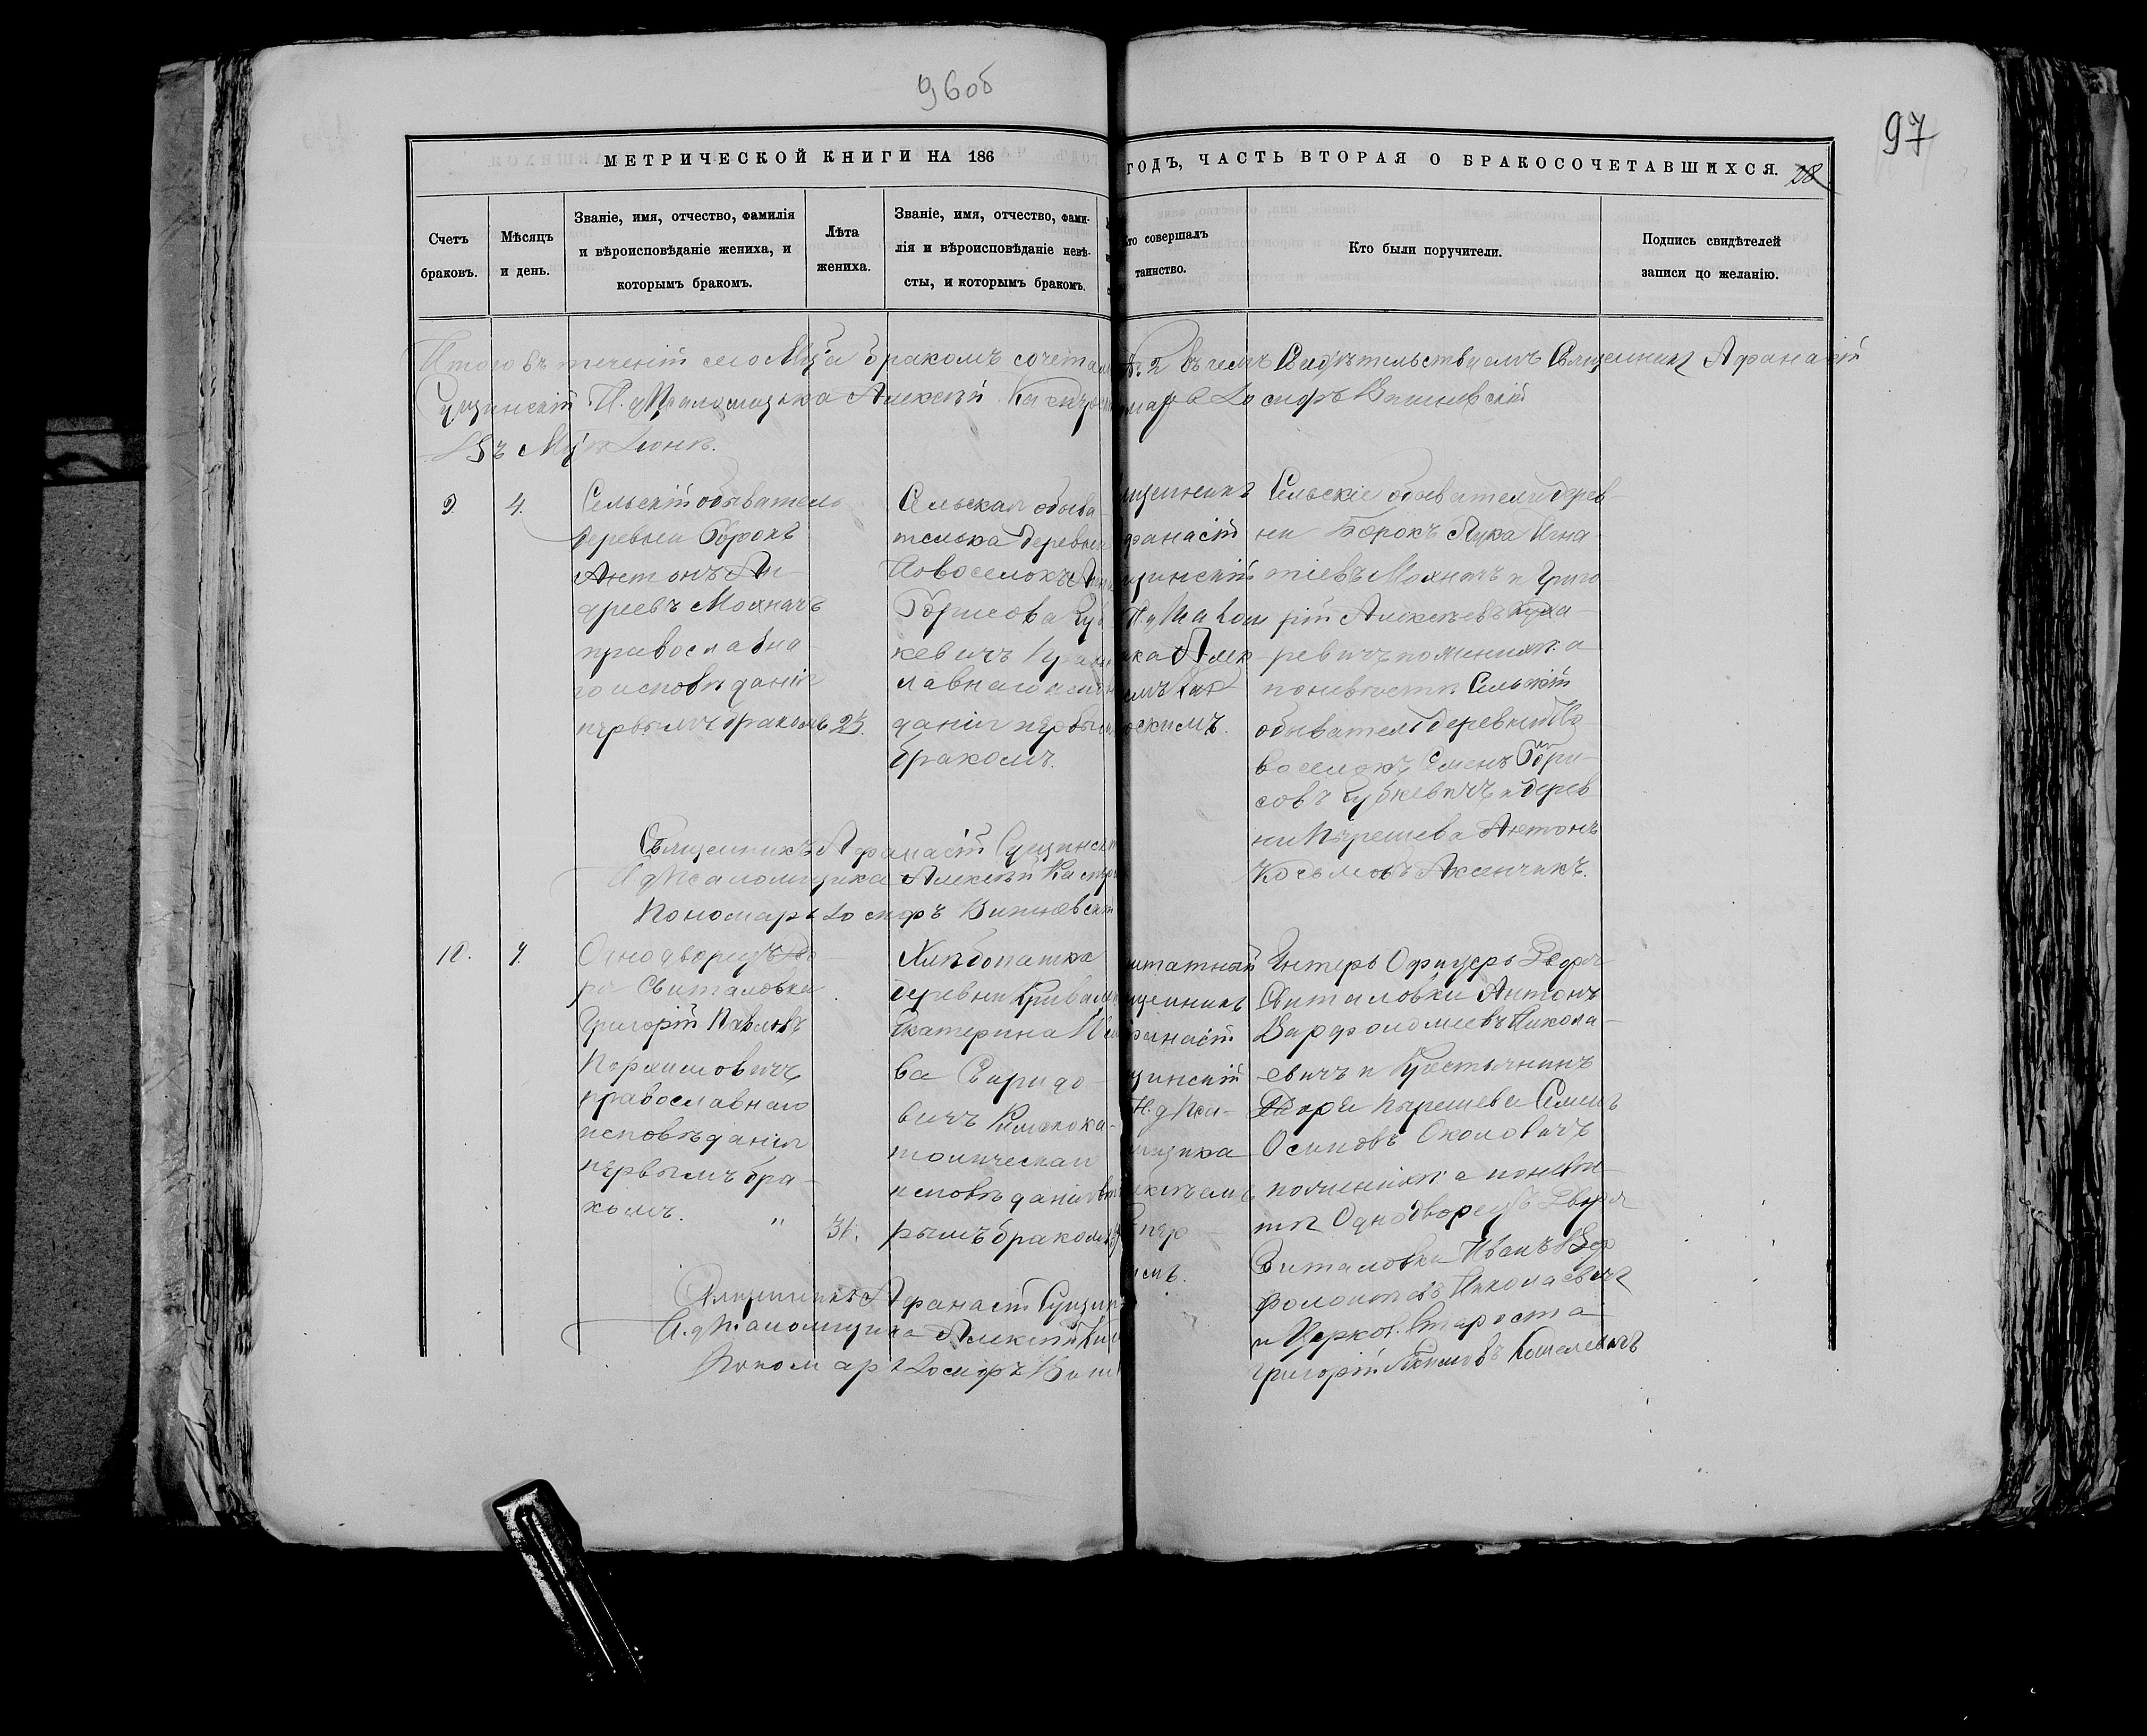 96об
97
МЕТРИЧЕСКОЙ КНИГИ НА 186
ГОДЪ, ЧАСТЬ ВТОРАЯ О БРАКОСОЧЕТАВШИХСЯ.
28
Счетъ
браковъ.
Мѣсяцъ
и день.
Званіе, имя, отчество, фамилія
и вѣроисповѣданіе жениха, и
которымъ бракомъ.
Лѣта
жениха.
Званіе, имя, отчество, фами-
лія и вѣроисповѣданіе невѣ-
сты, и которымъ бракомъ.
Кто совершалъ
таинство.
Кто были поручители.
Подпись свидѣтелей
записи по желанію.
Итого въ теченіи сего Мца бракомъ сочета 2 въ чемъ Свидѣтельствуемъ Священникъ Афанасій
И. д Псаломщика Алексѣй Іосифъ Вишневскій
Въ Мцѣ Іюнѣ.
9. 4.
Сельскій обыватель
деревни Борокъ
Антонъ Ан-
дреевъ Молначъ
православна-
го исповѣданія
первымъ бракомъ 23.
Сельская обыва
телька деревни
Новоселокъ
Борисова
кевичъ
славнаго
данія первым
бракомъ.
щенникъ
фанасій
щинскій
И. д
ка Алек-
Сельскіе обыватели дерев-
ни Борокъ Лука Игна-
тіевъ Молначъ и Григо
рій Алексѣевъ
ревичъ по женихѣ а
по невѣстѣ Сельскій
обыватель деревни Но-
воселокъ Семенъ Бори-
совъ Губкевичъ и дерев
ни Пырешева Антонъ
Косьмовъ Акинчикъ.
Священникъ Афанасій
И. д Псаломщика Алексѣй
Пономарь Іосифъ Вишневскій
10. 7.
Однодворецъ Дво-
ра Свиталовки
Григорій Павловъ
православнаго
исповѣданія
первымъ бра-
комъ. " 31.
Хлѣбопашка
деревни
Екатерина
ва Свиридо-
вичъ Римскока-
толическаго
исповѣданія вто
рымъ бракомъ
штатный
щенникъ
фанасій
щинскій
И. д Пса-
мщика
Унтеръ Офицеръ Двора
Свиталовки Антонъ
Варфоломеевъ Никола-
евичъ и Крестьянинъ
Двора Пырешева Семенъ
Осиповъ Околовичъ
по женихѣ а по невѣс-
тѣ Однодворецъ Двора
Свиталовки Иванъ Вар
фоломеевъ Николаевичъ
и Церков. Староста
Григорій Кошелевичъ
Священникъ Афанасій
И. д Псаломщика Алексѣй
Пономарь Іосифъ